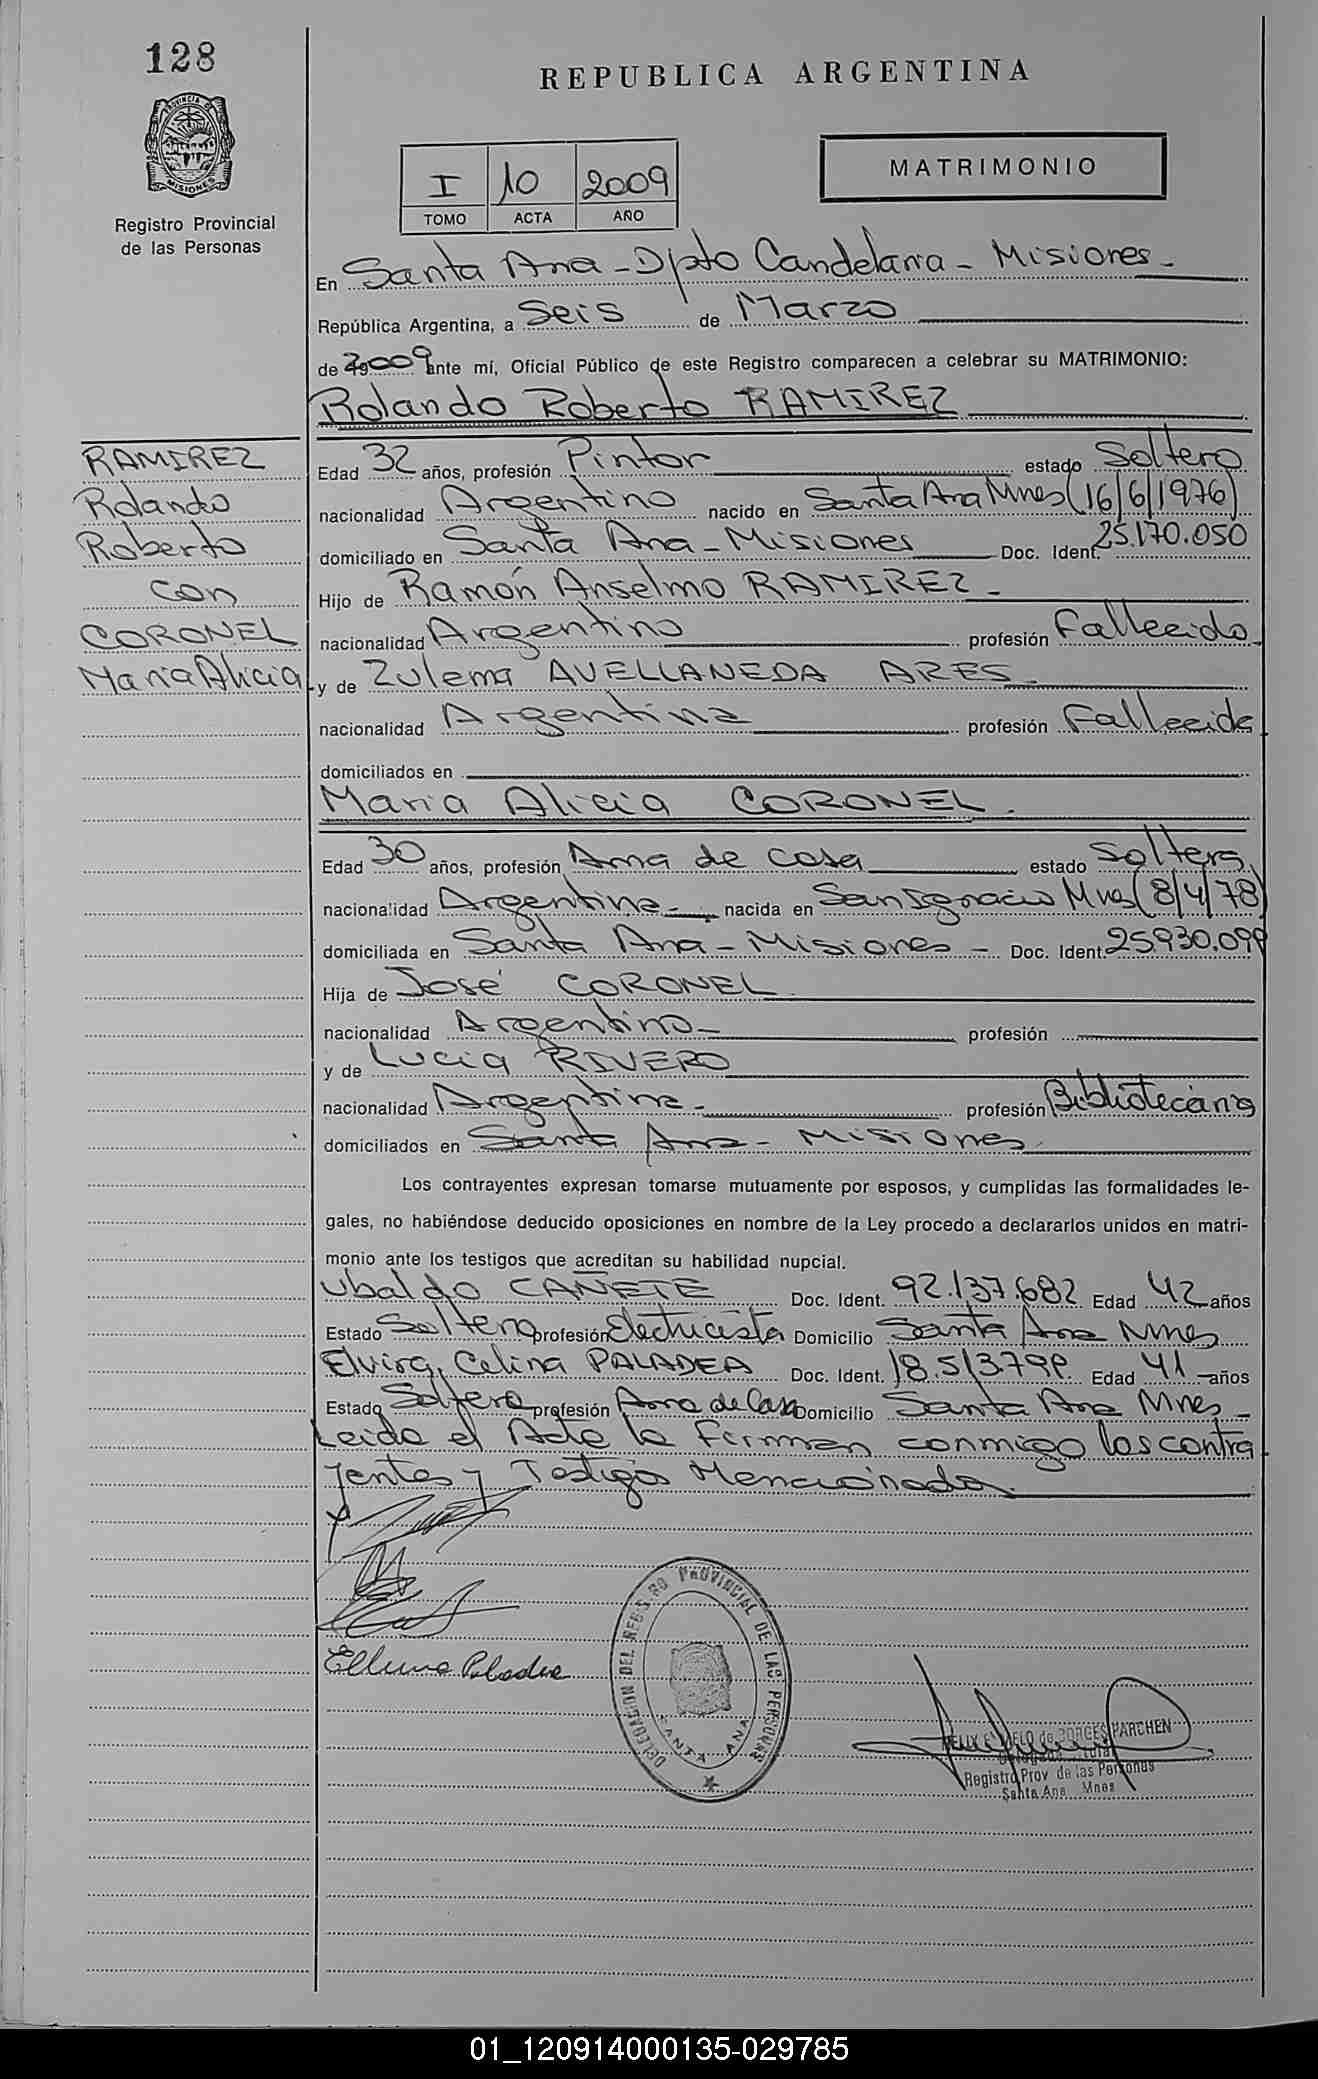 128
REPUBLICA ARGENTINA
PROVINCIA DE
MISIONES
Registro Provincial
de las Personas
I 10 2009
TOMO ACTA AÑO
MATRIMONIO
En Santa Ana - Dpto Candelaria - Misiones -
República Argentina, a Seis de Marzo
de 2009 ante mí, Oficial Público de este Registro comparecen a celebrar su MATRIMONIO:
Rolando Roberto RAMIREZ
RAMIREZ
Rolando
Roberto
con
CORONEL
Maria Alicia
Edad 32 años, profesión Pintor estado Soltero
nacionalidad Argentino nacido en Santa Ana Mnes (16/6/1976)
domiciliado en Santa Ana - Misiones Doc. Ident. 25.170.050
Hijo de Ramón Anselmo RAMIREZ -
nacionalidad Argentino profesión Fallecido -
y de Zulema AVELLANEDA ARES -
nacionalidad Argentina profesión Fallecida
domiciliados en
Maria Alicia CORONEL.
Edad 30 años, profesión Ama de casa estado Soltera
nacionalidad Argentina - nacida en San Ignacio Mnes (8/4/78)
domiciliada en Santa Ana - Misiones - Doc. Ident. 25.930.099
Hija de José CORONEL
nacionalidad Argentino - profesión
y de Lucia RIVERO
nacionalidad Argentina - profesión Bibliotecaria
domiciliados en Santa Ana - Misiones
Los contrayentes expresan tomarse mutuamente por esposos, y cumplidas las formalidades le-
gales, no habiéndose deducido oposiciones en nombre de la Ley procedo a declararlos unidos en matri-
monio ante los testigos que acreditan su habilidad nupcial.
Ubaldo CAÑETE Doc. Ident. 92.137.682 Edad 42 años
Estado Soltero profesión Electricista Domicilio Santa Ana Mnes
Elvira Celina PALADEA Doc. Ident. 18.513.799 Edad 41 años
Estado Soltera profesión Ama de Casa Domicilio Santa Ana Mnes -
Leida el Acta la Firman conmigo los contra
yentes y Testigos Mencionados
Paladea
DELEGACION DEL REGISTRO PROVINCIAL DE LAS PERSONAS
SANTA ANA
de BORGES PARCHEN
Registro Prov de las Personas
Santa Ana Mnes
01_120914000135-029785